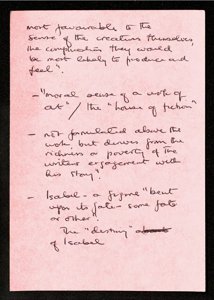 most favourable to the
sense of the creatures themselves,
the complications they would
be most likely to produce and
feel".
- "Moral sense of a work of
art" / the "house of fiction"
- not formulated above the
work, but derives from the
richness or poverty of the
writer's engagement with
his story".
- Isabel - a figure "bent
upon its fate - some fate
or other".
The "destiny"
of Isabel